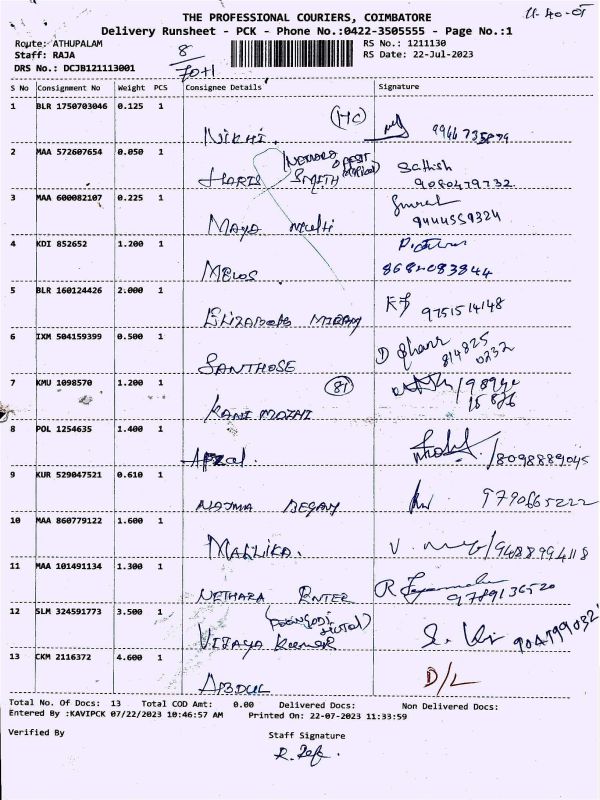 THE PROFESSIONAL COURIERS, COIMBATORE
Delivery Runsheet - PCK - Phone No.:0422-3505555 - Page No.:1
Route: ATHUPALAM
RS No.: 1211130
Staff: RAJA
8
RS Date: 22-Jul-2023
DRS No.: DCJB121113001
70+1
S No Consignment No Weight PCS Consignee Details Signature
1 BLR 1750703046 0.125 1
(HC)
NIKHI.
2 MAA 572607654 0.050 1
HARIS SMITH
Sathish
9080479732
3 MAA 600082107 0.225 1
MAYA Multi
9444559324
4 KDI 852652 1.200 1
MELOS
8682083844
5 BLR 160124426 2.000 1
9751514148
6 IXM 504159399 0.500 1
SANTHOSE
814825
0232
7 KMU 1098570 1.200 1
(81)
KANI MOZHI
8 POL 1254635 1.400 1
Afzal.
/8098889045
9 KUR 529047521 0.610 1
NAJMA BEGAM
9790665222
10 MAA 860779122 1.600 1
MALLIKA.
/9488994118
11 MAA 101491134 1.300 1
NETHARA ENTER
9789136520
12 SLM 324591773 3.500 1
VIJAYA Kumar
13 CKM 2116372 4.600 1
ABDUL
D/L
Total No. Of Docs: 13 Total COD Amt: 0.00 Delivered Docs: Non Delivered Docs:
Entered By :KAVIPCK 07/22/2023 10:46:57 AM Printed On: 22-07-2023 11:33:59
Verified By
Staff Signature